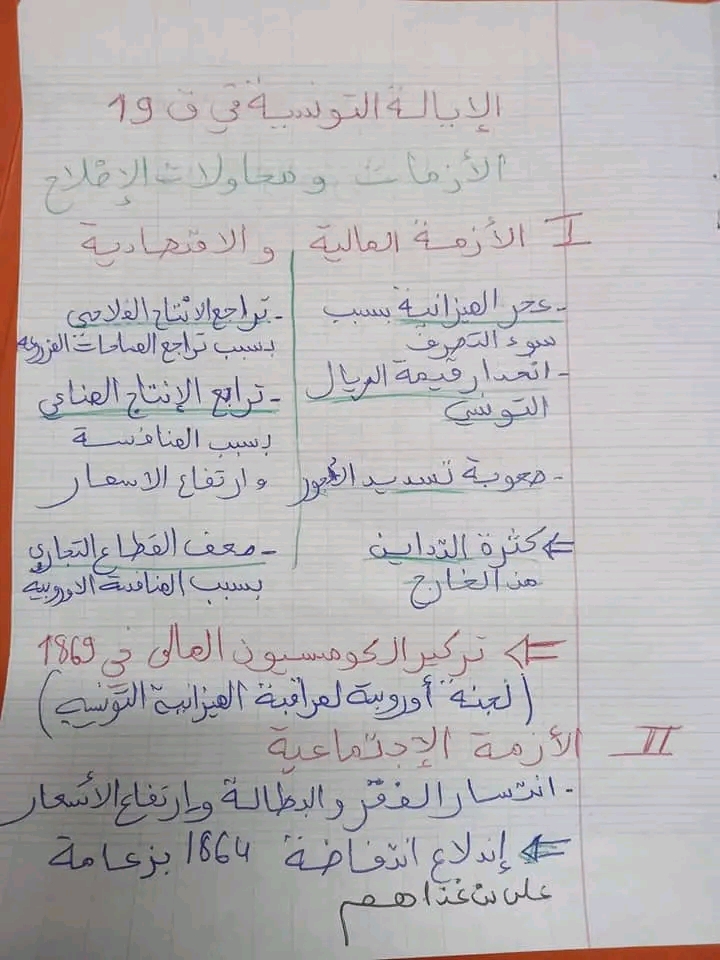 الإيالة التونسية في ق 19
الأزمات ومحاولات الإصلاح
I الأزمة المالية والاقتصادية
- عجز الميزانية بسبب
سوء التصرف
- انحدار قيمة الريال
التونسي
- صعوبة تسديد الأجور
⇐ كثرة التداين
من الخارج
- تراجع الانتاج الفلاحي
بسبب تراجع المساحات المزروعة
- تراجع الإنتاج الصناعي
بسبب المنافسة
وارتفاع الاسعار
- ضعف القطاع التجاري
بسبب المنافسة الاوروبية
⇐ تركيز الكومسيون المالي في 1869
(لجنة أوروبية لمراقبة الميزانية التونسية)
II الأزمة الإجتماعية
- انتسار الفقر والبطالة وإرتفاع الأسعار
⇐ إندلاع انتفاضة 1864 بزعامة
علي بن غذاهم